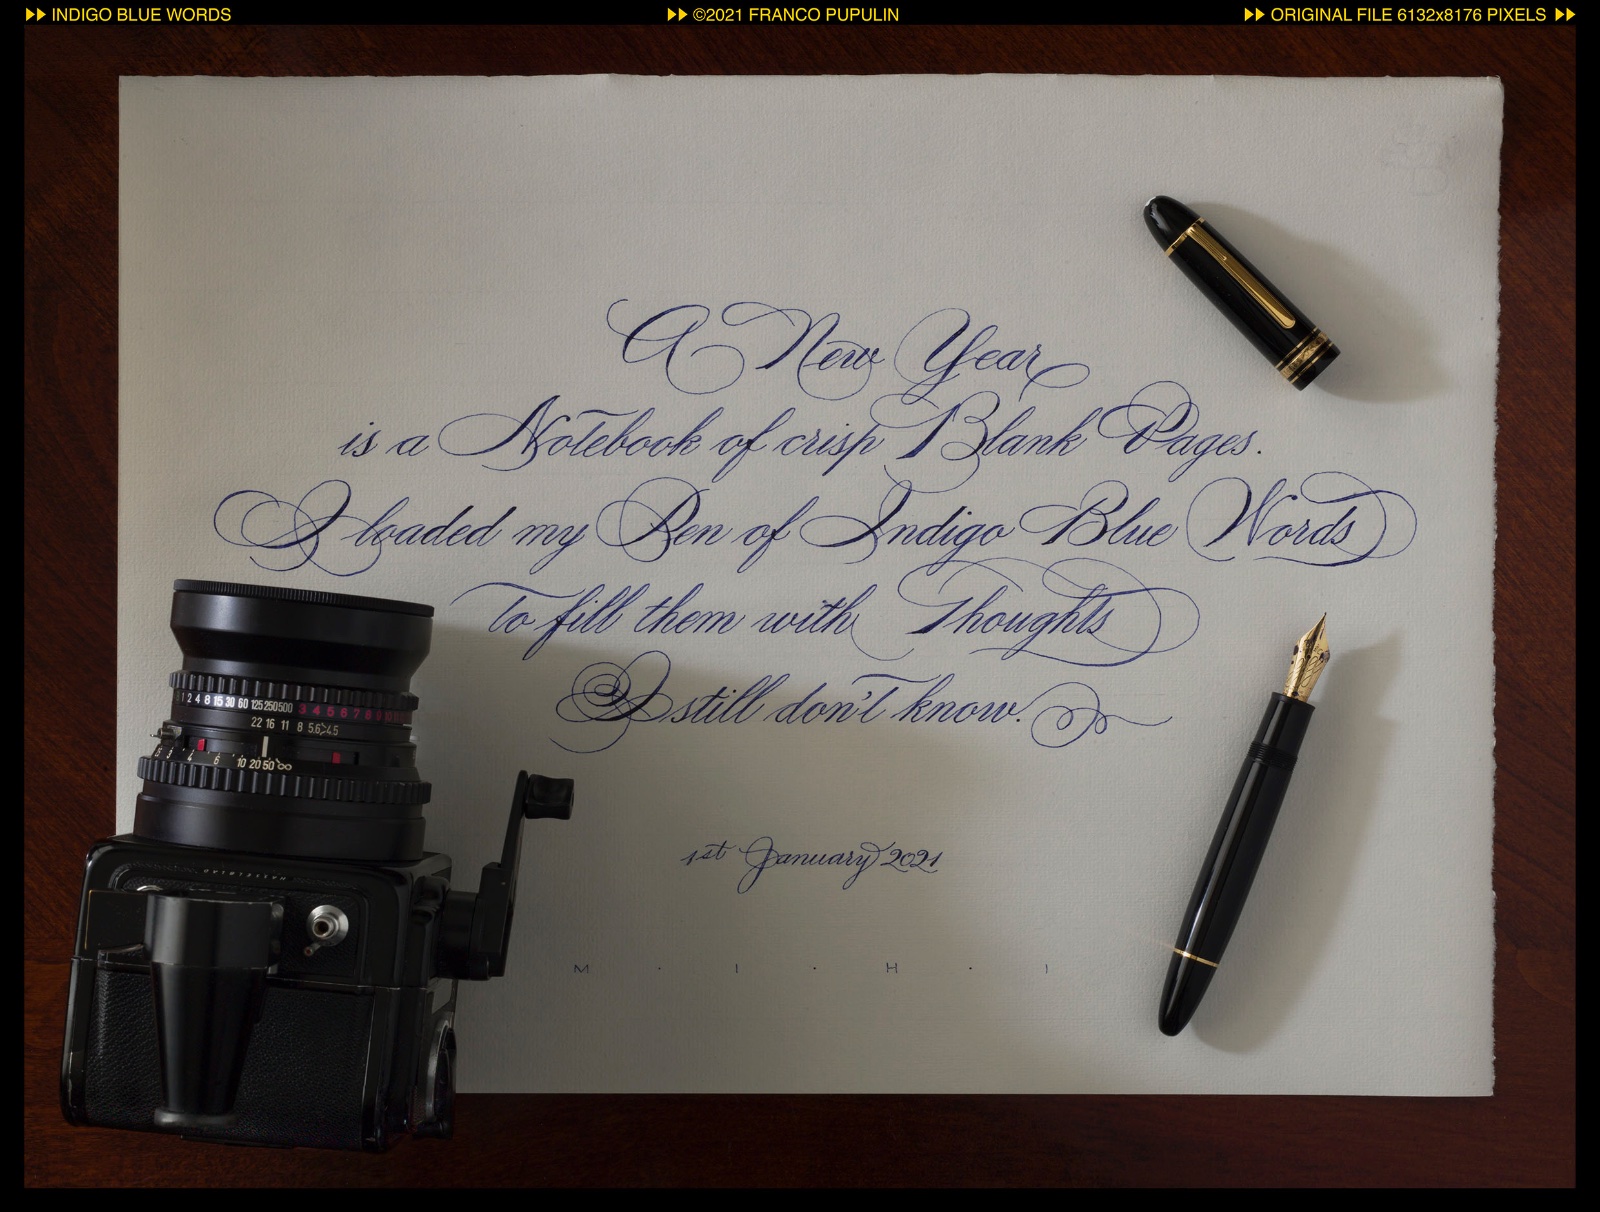 INDIGO BLUE WORDS
©2021 FRANCO PUPULIN
ORIGINAL FILE 6132x8176 PIXELS
A New Year
is a Notebook of crisp Blank Pages.
I loaded my Pen of Indigo Blue Words
To fill them with Thoughts
I still don't know.
1st January 2021
M · I · H · I
1 2 4 8 15 30 60 125 250 500 3 4 5 6 7 8 9 10
22 16 11 8 5.6 4.5
4 6 10 20 50 ∞
HASSELBLAD